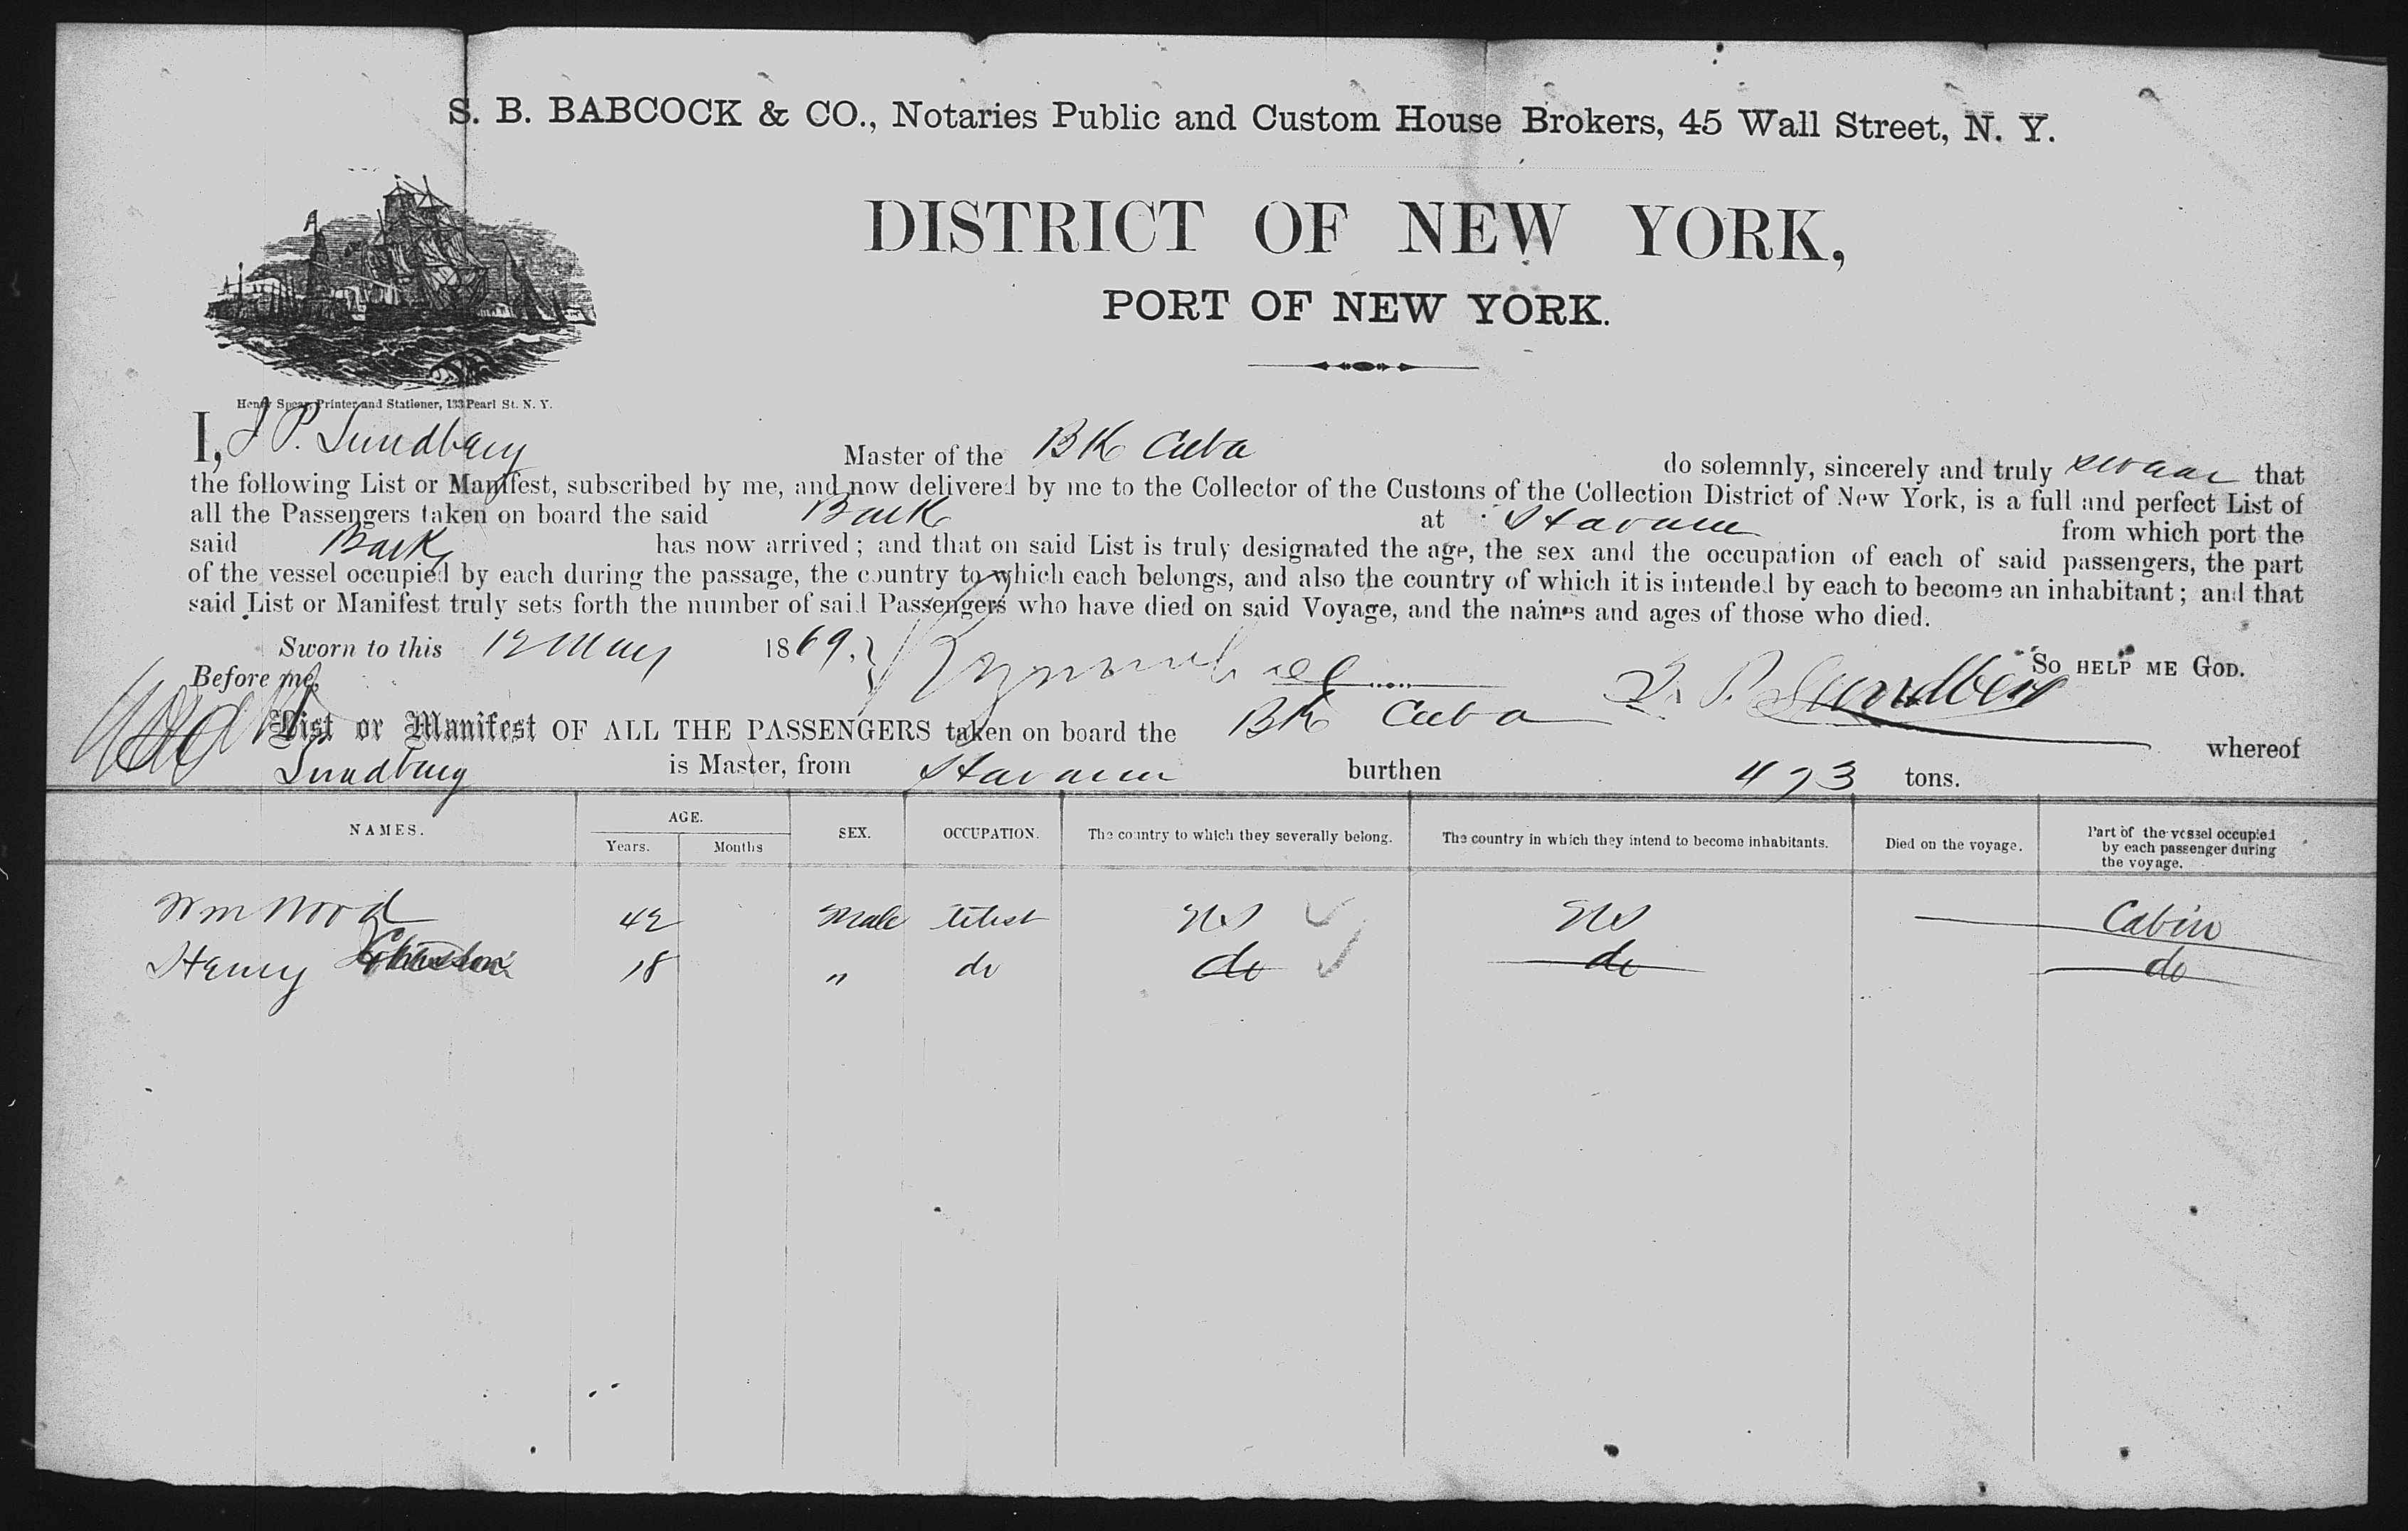 S. B. BABCOCK & CO., Notaries Public and Custom House Brokers, 45 Wall Street, N. Y.
DISTRICT OF NEW YORK,
PORT OF NEW YORK.
Henry Spear, Printer and Stationer, 133 Pearl St. N. Y.
I, J P. Sundberg Master of the Bk Cuba do solemnly, sincerely and truly swear that
the following List or Manifest, subscribed by me, and now delivered by me to the Collector of the Customs of the Collection District of New York, is a full and perfect List of
all the Passengers taken on board the said Bark at Havana from which port the
said Bark has now arrived; and that on said List is truly designated the age, the sex and the occupation of each of said passengers, the part
of the vessel occupied by each during the passage, the country to which each belongs, and also the country of which it is intended by each to become an inhabitant; and that
said List or Manifest truly sets forth the number of said Passengers who have died on said Voyage, and the names and ages of those who died.
Sworn to this 12 May 1869. So HELP ME GOD.
Before me, J. P. Sundberg
List or Manifest OF ALL THE PASSENGERS taken on board the Bk Cuba whereof
Sundberg is Master, from Havana burthen 473 tons.
NAMES. AGE. Years. Months SEX. OCCUPATION. The country to which they severally belong. The country in which they intend to become inhabitants. Died on the voyage. Part of the vessel occupied by each passenger during the voyage.
Wm Wood 42 Male US US Cabin
Henry 18 " do do do do